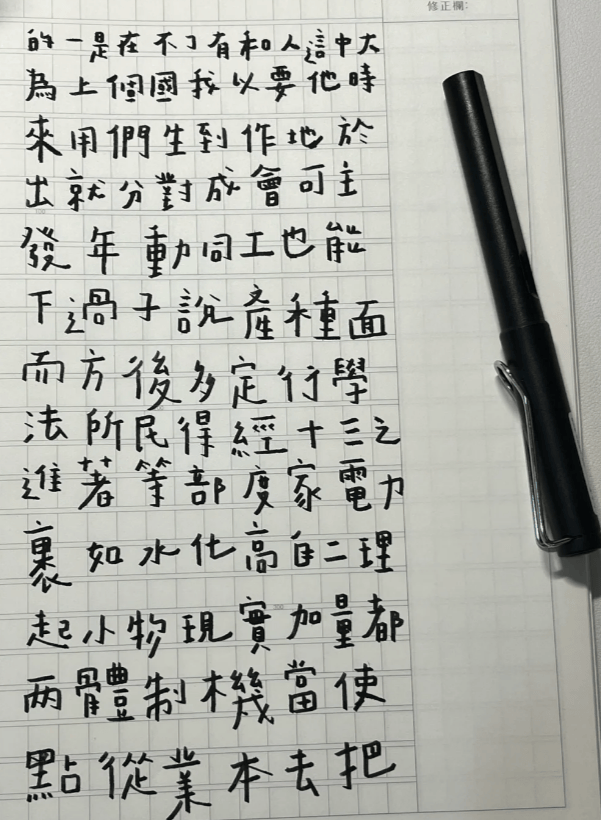 修正欄:
的一是在不了有和人這中大
為上個國我以要他時
來用們生到作地於
出就分對成會可主
發年動同工也能
下過子說產種面
而方後多定行學
法所民得經十三之
進著等部度家電力
裏如水化高自二理
起小物現實加量都
两體制機當使
點從業本去把